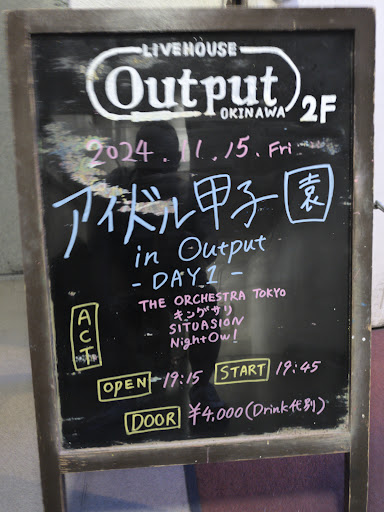 LIVEHOUSE
Output
OKINAWA
2F
2024.11.15.Fri
アイドル甲子園
in Output
- DAY1 -
ACT
THE ORCHESTRA TOKYO
キングサリ
SITUASION
NightOwl
OPEN 19:15 START 19:45
DOOR ¥4,000(Drink代別)